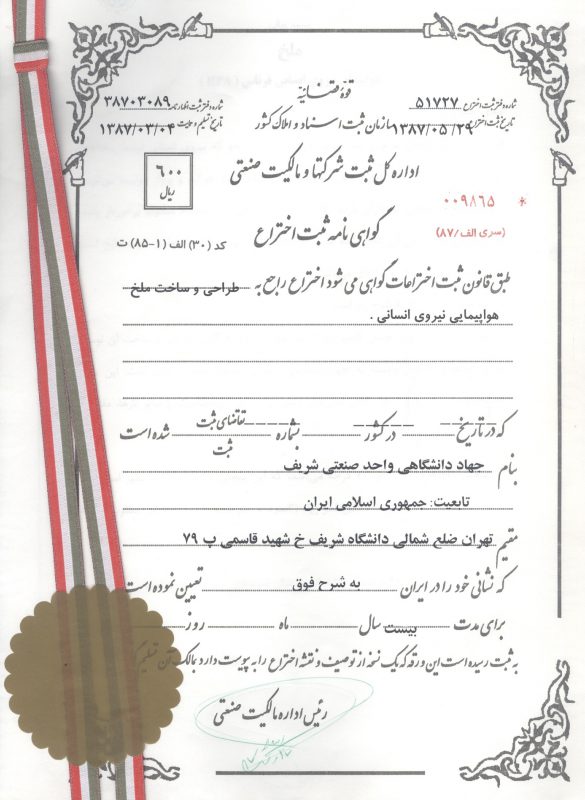 قوهٔ قضائیه
شماره دفتر ثبت اختراع ۵۱۷۲۷
شماره دفتر ثبت اظهارنامه ۳۸۷۰۳۰۸۹
سازمان ثبت اسناد و املاک کشور
تاریخ ثبت اختراع ۱۳۸۷/۰۵/۲۹
تاریخ تسلیم و ساعت ۱۳۸۷/۰۳/۰۴
اداره کل ثبت شرکتها و مالکیت صنعتی
۶۰۰
ریال
* ۰۰۹۸۶۵
(سری الف/۸۷)
گواهی نامه ثبت اختراع
کد (۳۰) الف (۱-۸۵) ت
طبق قانون ثبت اختراعات گواهی می شود اختراع راجع به طراحی و ساخت ملخ
هواپیمایی نیروی انسانی .
که در تاریخ در کشور بشماره تقاضای ثبت شده است
ثبت
بنام جهاد دانشگاهی واحد صنعتی شریف
تابعیت: جمهوری اسلامی ایران
مقیم تهران ضلع شمالی دانشگاه شریف خ شهید قاسمی پ ۷۹
که نشانی خود را در ایران به شرح فوق تعیین نموده است
برای مدت بیست سال ماه روز
به ثبت رسیده است این ورقه که یک نسخه از توصیف و نقشه اختراع را به پیوست دارد بمالک آن تسلیم
رئیس اداره مالکیت صنعتی